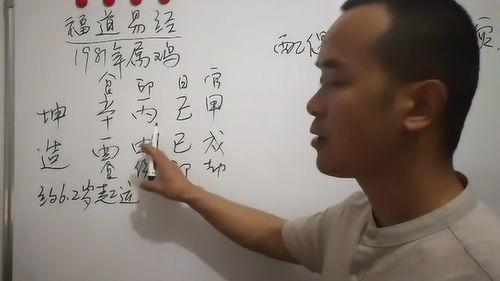 福道易经
1981年属鸡
食 印 日 官
坤 辛 丙 己 甲
造 酉 申 巳 戌
食 印 劫
约6.2岁起运
配得